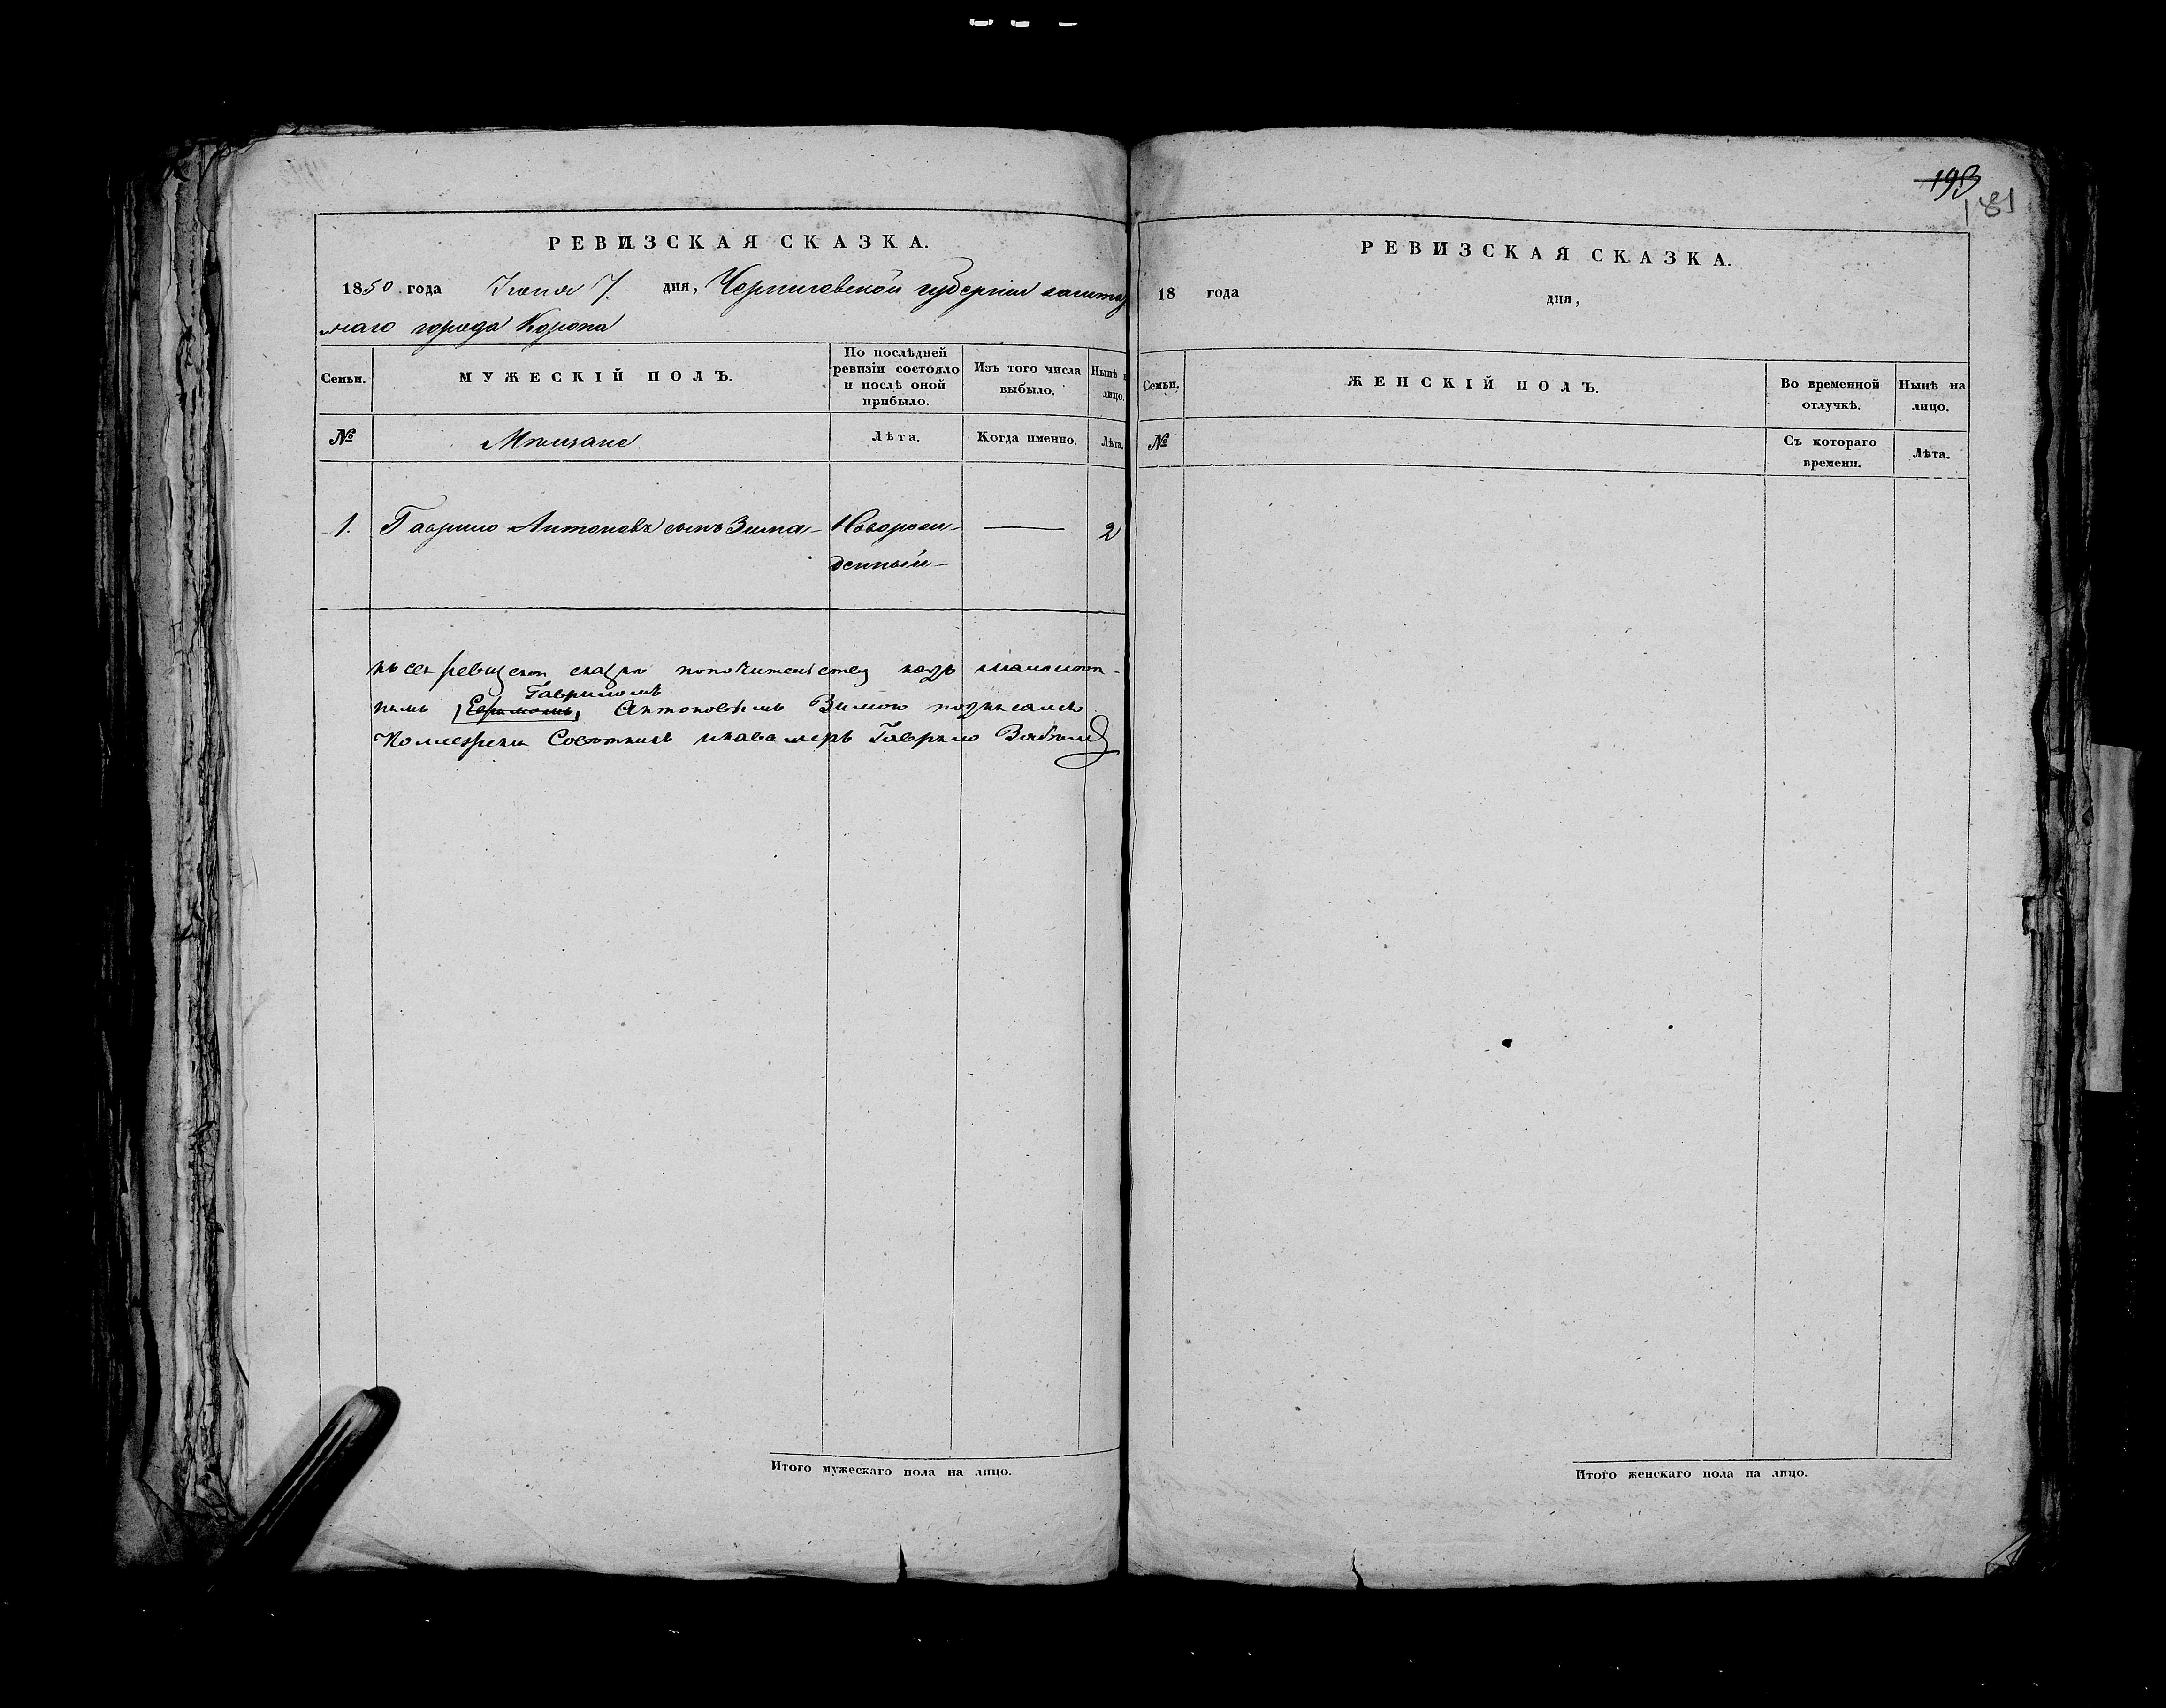 193
181
РЕВИЗСКАЯ СКАЗКА.
1850 года Іюня 7. дня, Черниговской губерніи заштат
наго города Коропа
Семьи.
МУЖЕСКІЙ ПОЛЪ.
По послѣдней
ревизіи состояло
и послѣ оной
прибыло.
Изъ того числа
выбыло.
Нынѣ н
лицо.
№
Мѣщане
Лѣта.
Когда именно.
Лѣта.
1. Гаврило Антоновъ сынъ Зима Новорож- 2
денный
къ сей ревизской сказки попечительству надъ малолѣт-
нымъ Гавриломъ Антоновымъ Зимою подписался
Совѣтникъ и кавалеръ Гаврило
Итого мужескаго пола на лицо.
РЕВИЗСКАЯ СКАЗКА.
18 года дня,
Семьи.
ЖЕНСКІЙ ПОЛЪ.
Во временной
отлучкѣ.
Нынѣ на
лицо.
№
Съ котораго
времени.
Лѣта.
Итого женскаго пола на лицо.